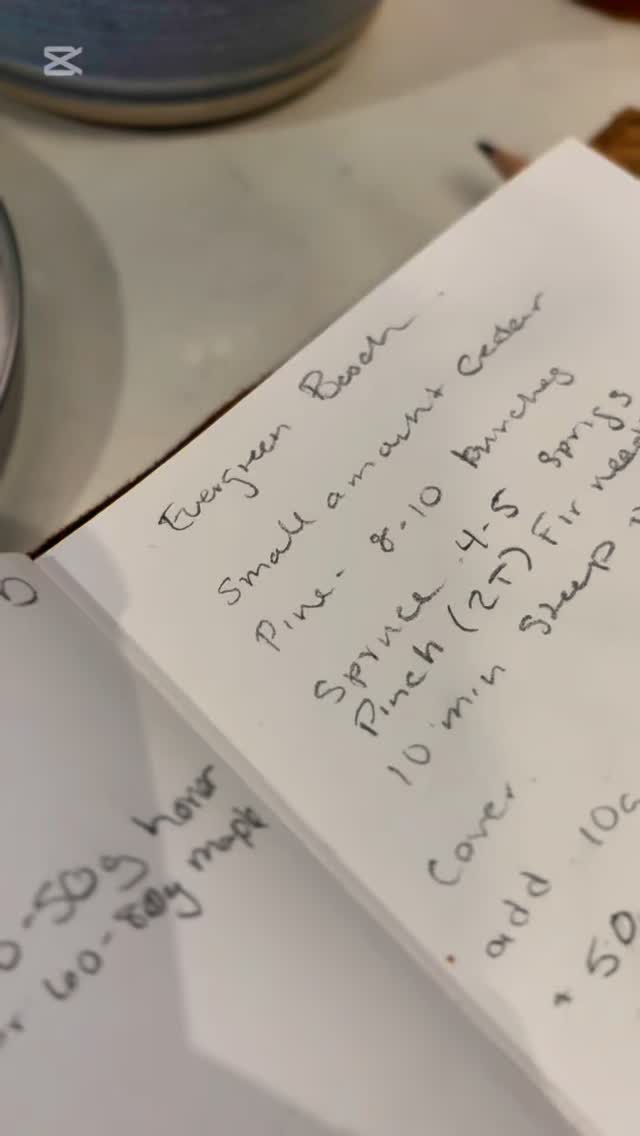 Evergreen Booch
Small amount Cedar
Pine - 8-10 bunches
Spruce 4-5 sprigs
Pinch (2T) Fir
10 min steep
Cover.
add 10g
+ 50
0-50g
60-80g maple